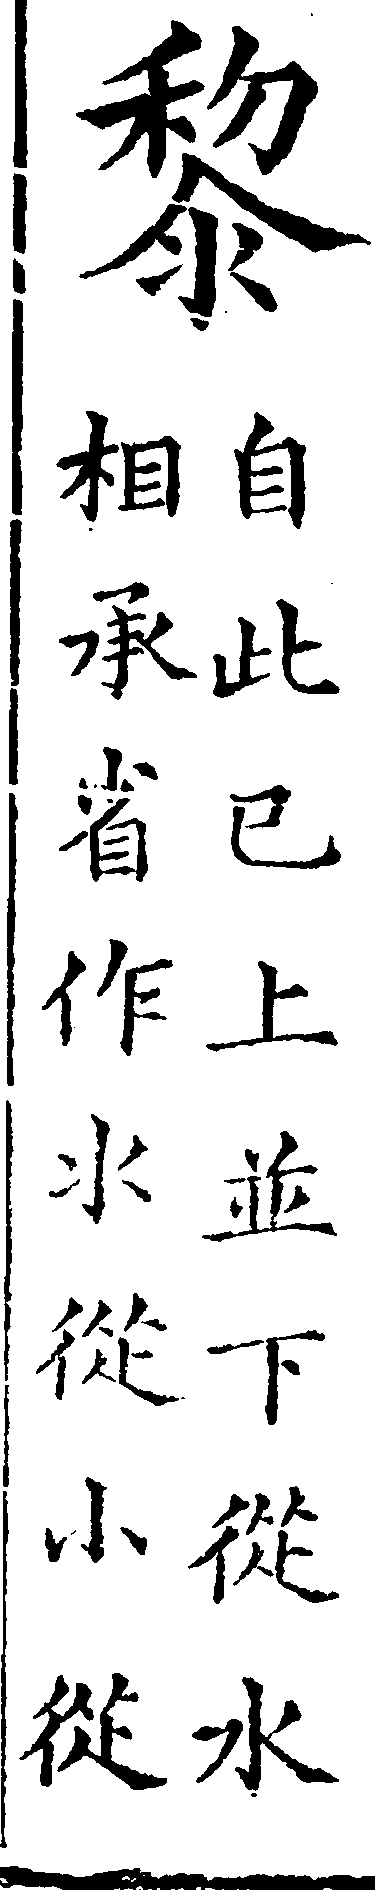 黎
自此已上並下從水
相承省作氺從小從